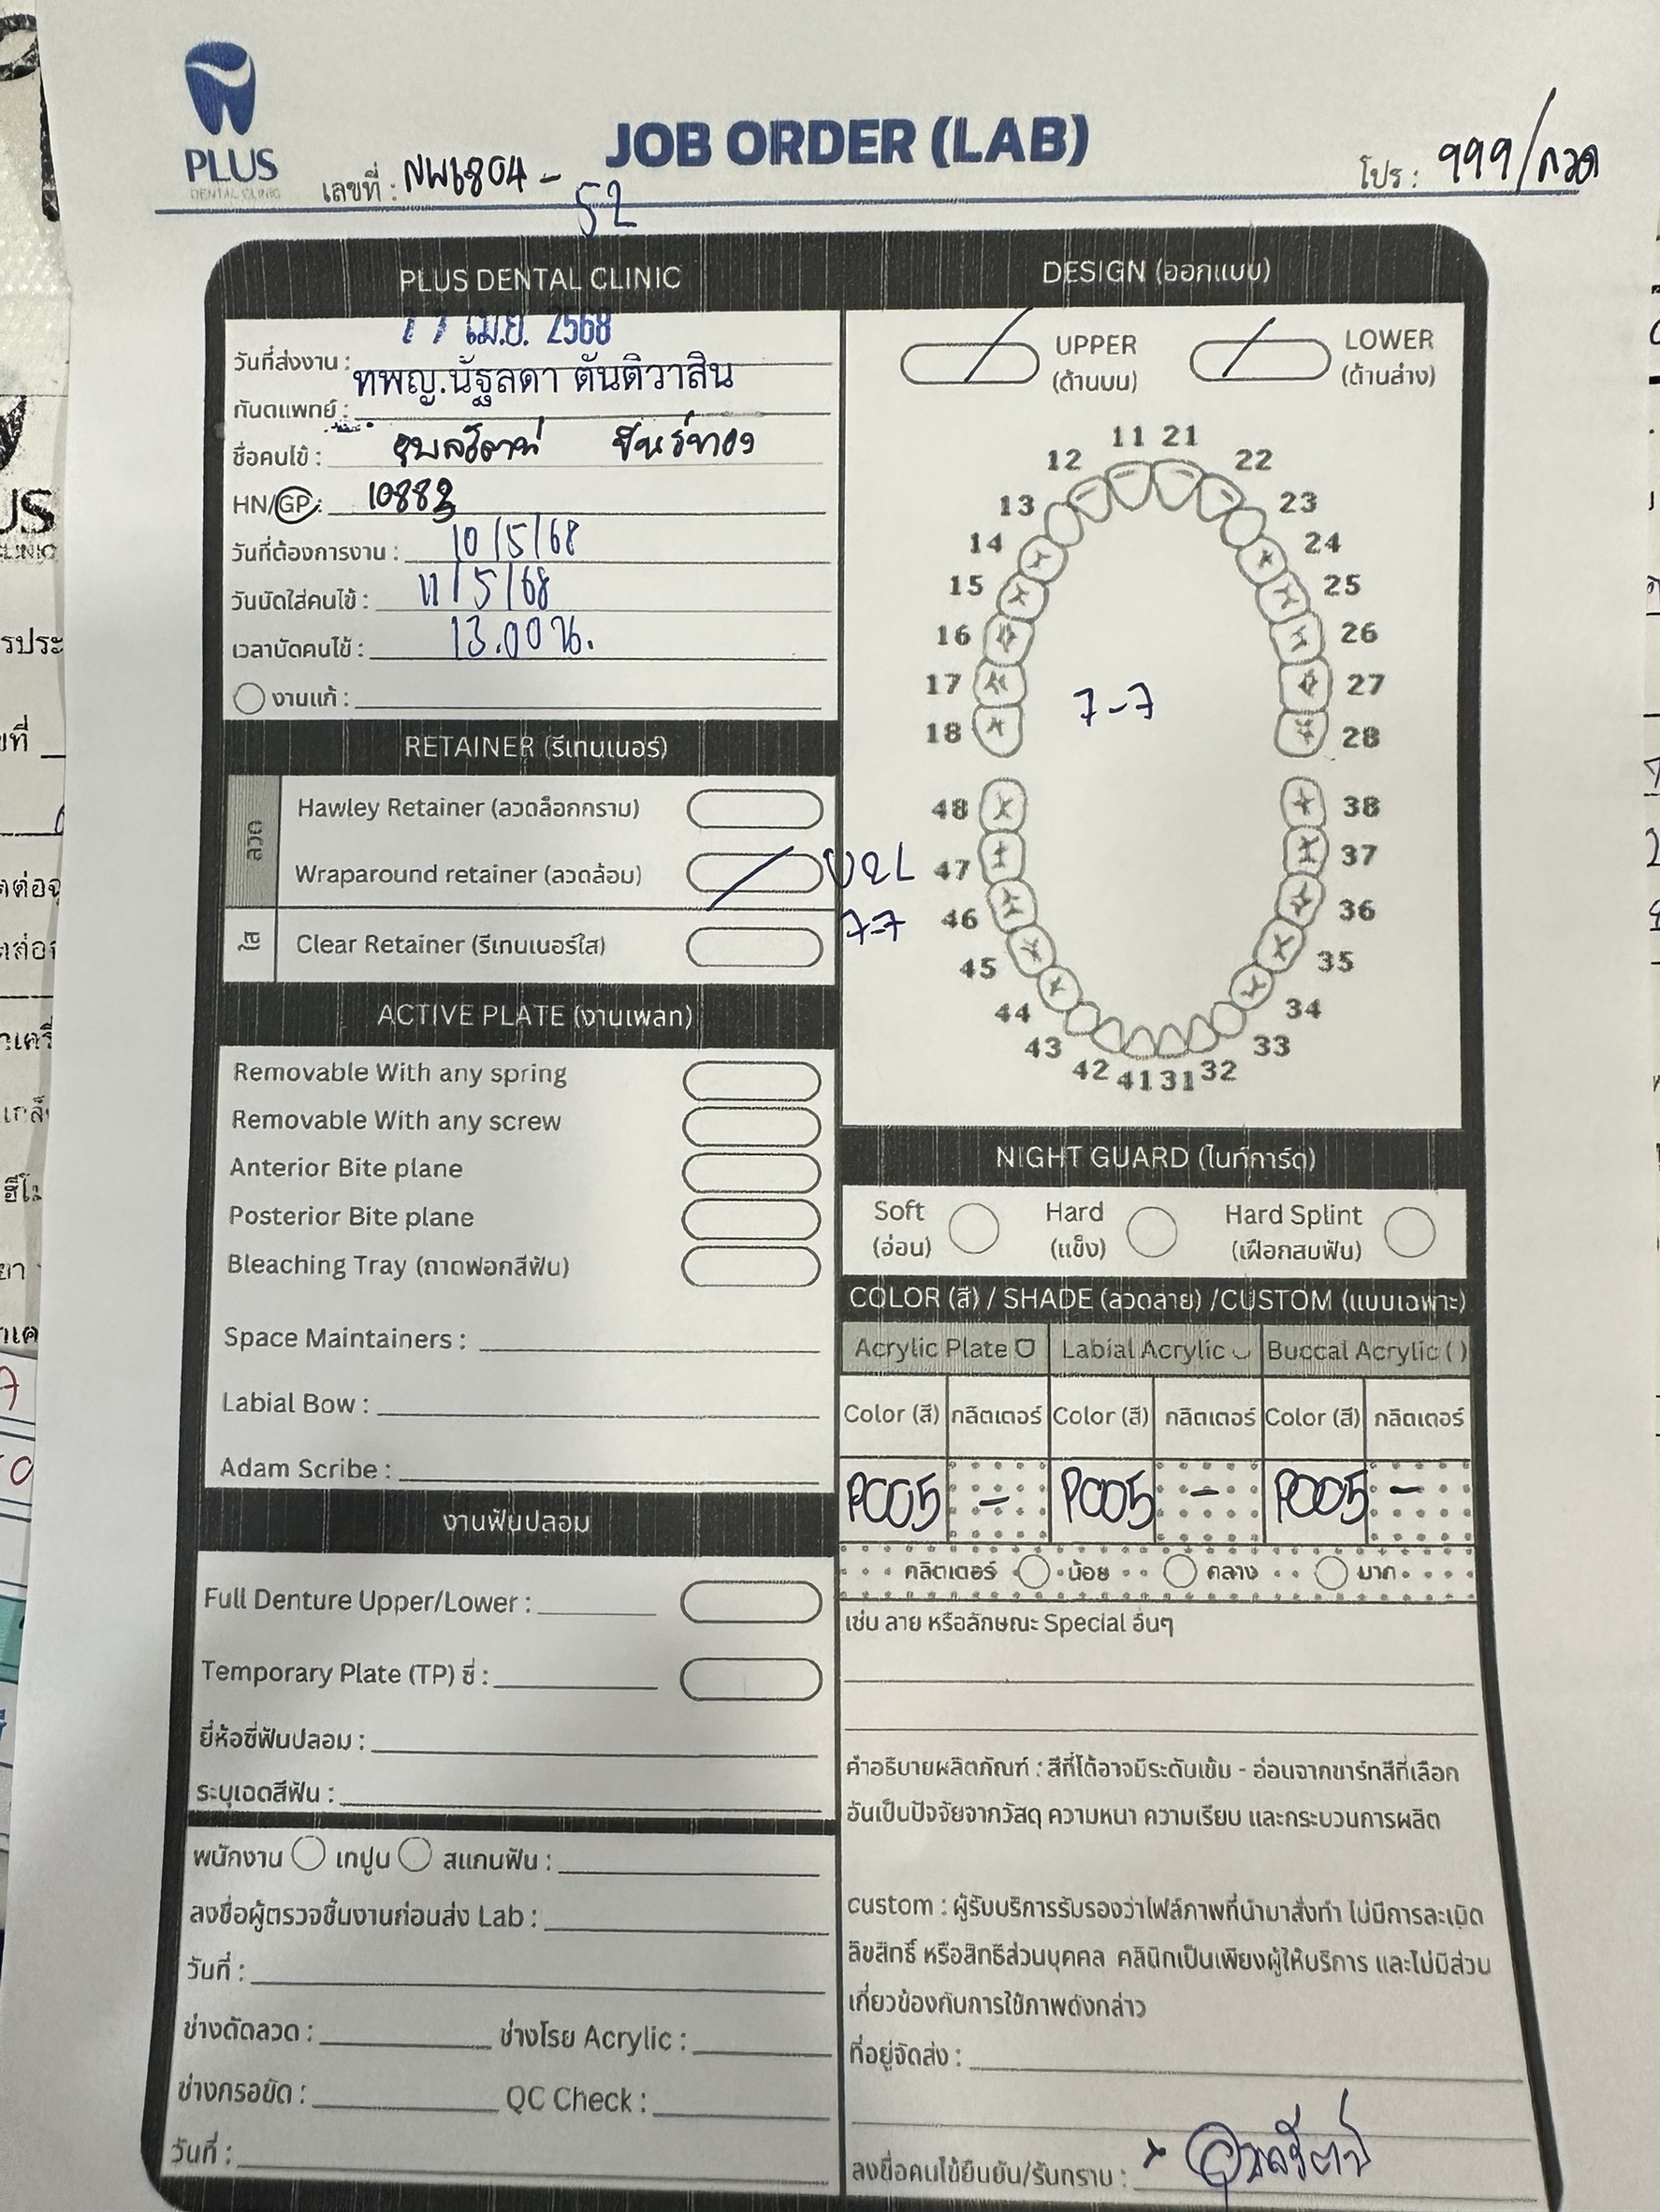 PLUS
DENTAL CLINIC
JOB ORDER (LAB)
เลขที่ : NW6804 - 52
โปร : 999/ลวด
PLUS DENTAL CLINIC
วันที่ส่งงาน : เม.ย. 2568
ทันตแพทย์ : ทพญ.นัฐลดา ตันติวาสิน
ชื่อคนไข้ : อุบลรัตน์
HN/GP : 10883
วันที่ต้องการงาน : 10/5/68
วันนัดใส่คนไข้ : 11/5/68
เวลานัดคนไข้ : 13.00 น.
งานแก้ :
RETAINER (รีเทนเนอร์)
ลวด
Hawley Retainer (ลวดล็อกกราม)
Wraparound retainer (ลวดล้อม)
U&L
7-7
ใส
Clear Retainer (รีเทนเนอร์ใส)
ACTIVE PLATE (งานเพลท)
Removable With any spring
Removable With any screw
Anterior Bite plane
Posterior Bite plane
Bleaching Tray (ถาดฟอกสีฟัน)
Space Maintainers :
Labial Bow :
Adam Scribe :
งานฟันปลอม
Full Denture Upper/Lower :
Temporary Plate (TP) ซี่ :
ยี่ห้อซี่ฟันปลอม :
ระบุเฉดสีฟัน :
พนักงาน เทปูน สแกนฟัน :
ลงชื่อผู้ตรวจชิ้นงานก่อนส่ง Lab :
วันที่ :
ช่างดัดลวด : ช่างโรย Acrylic :
ช่างกรอขัด : QC Check :
วันที่ :
DESIGN (ออกแบบ)
UPPER (ด้านบน)
LOWER (ด้านล่าง)
11 21
12 22
13 23
14 24
15 25
16 26
17 7-7 27
18 28
48 38
47 37
46 36
45 35
44 34
43 33
42 41 31 32
NIGHT GUARD (ไนท์การ์ด)
Soft (อ่อน) Hard (แข็ง) Hard Splint (เฝือกสบฟัน)
COLOR (สี) / SHADE (ลวดลาย) /CUSTOM (แบบเฉพาะ)
Acrylic Plate Labial Acrylic Buccal Acrylic ( )
Color (สี) กลิตเตอร์ Color (สี) กลิตเตอร์ Color (สี) กลิตเตอร์
PC05 - PC05 - PC05 -
กลิตเตอร์ น้อย กลาง มาก
เช่น ลาย หรือลักษณะ Special อื่นๆ
คำอธิบายผลิตภัณฑ์ : สีที่ได้อาจมีระดับเข้ม - อ่อนจากชาร์ทสีที่เลือก
อันเป็นปัจจัยจากวัสดุ ความหนา ความเรียบ และกระบวนการผลิต
custom : ผู้รับบริการรับรองว่าไฟล์ภาพที่นำมาสั่งทำ ไม่มีการละเมิด
ลิขสิทธิ์ หรือสิทธิส่วนบุคคล คลินิกเป็นเพียงผู้ให้บริการ และไม่มีส่วน
เกี่ยวข้องกับการใช้ภาพดังกล่าว
ที่อยู่จัดส่ง :
ลงชื่อคนไข้ยืนยัน/รับทราบ : × อุบลรัตน์